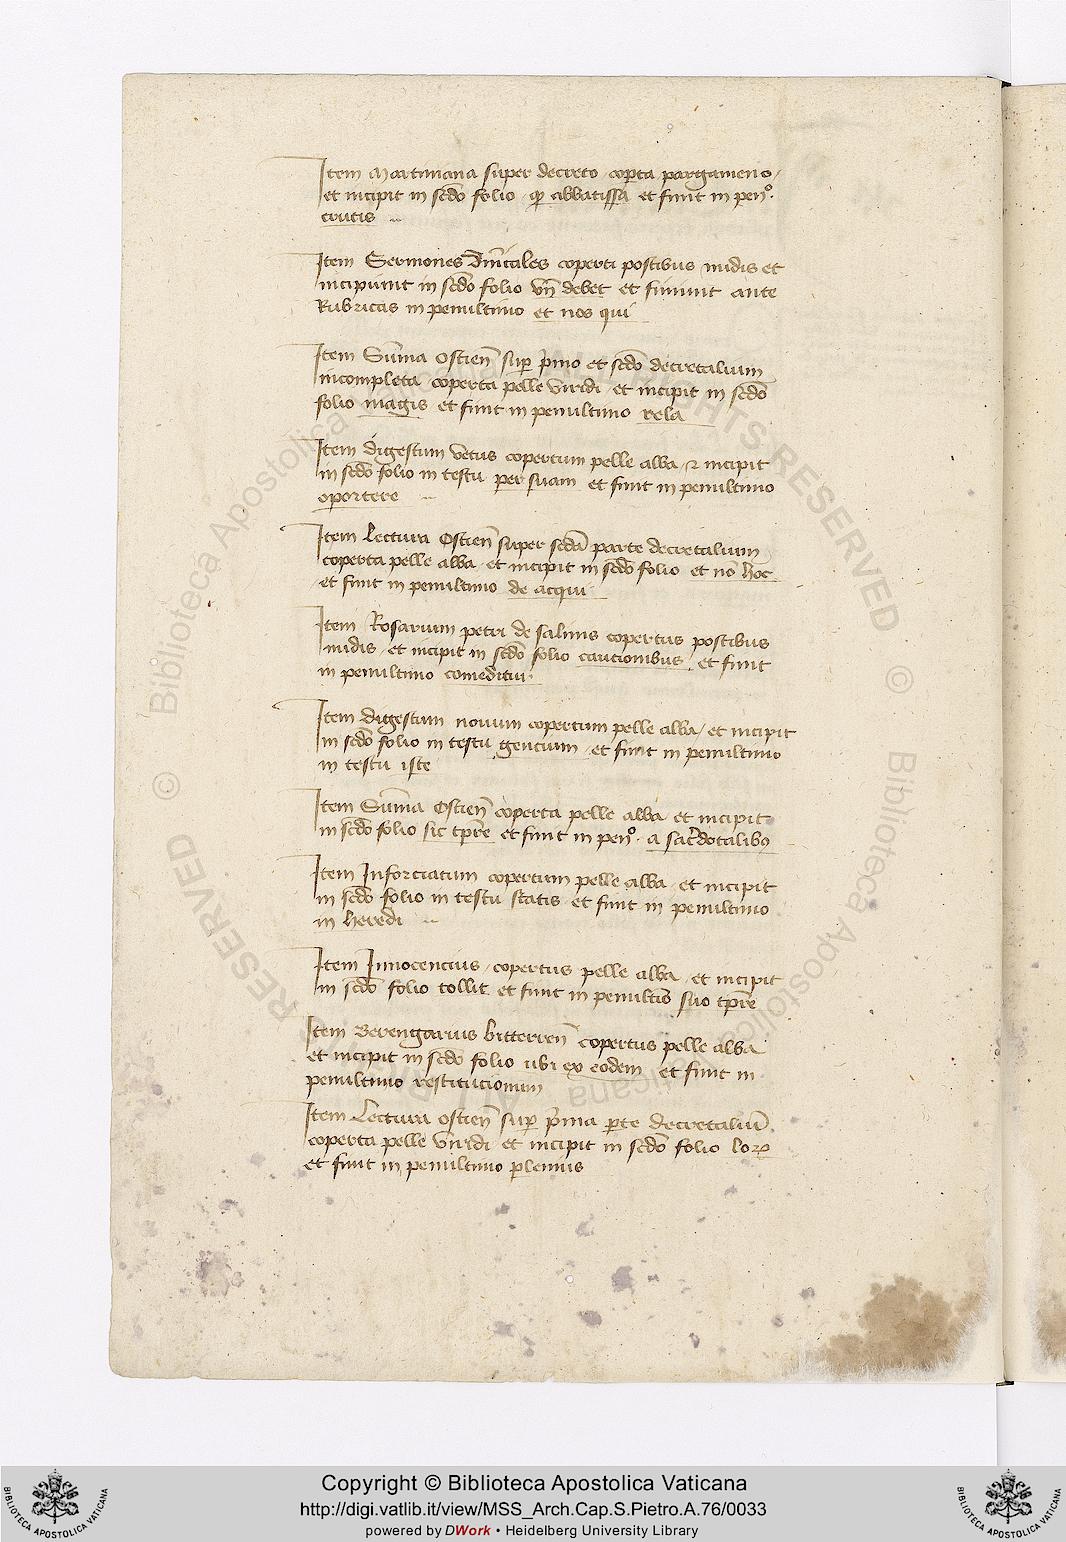 Item Martiniana super decreto coperta pargameno
et incipit in scdo folio qp abbatissa et finit in peno
crutis
Item Sermones dnicales coperti postibus nudis et
incipiunt in scdo folio vn debet et finiunt ante
Rubricas in penultimo et nos qui
Item Suma ostien sup pmo et scdo decretalium
incompleta coperta pelle viridi et incipit in scdo
folio magis et finit in penultimo rela
Item digestum vetus copertum pelle alba et incipit
in scdo folio in testu per suam et finit in penultimo
oportere
Item Lectura Ostien super scda parte decretalium
coperta pelle alba et incipit in scdo folio et no hoc
et finit in penultimo de acqui
Item Rosarium petri de salinis copertus postibus
nudis et incipit in scdo folio caucionibus et finit
in penultimo comeditur
Item digestum novum copertum pelle alba et incipit
in scdo folio in testu gencium et finit in penultimo
in testu iste
Item Suma Ostien coperta pelle alba et incipit
in scdo folio sic tpre et finit in peno a sacdotalibus
Item Inforciatum copertum pelle alba et incipit
in scdo folio in testu statis et finit in penultimo
in heredi
Item Innocencius copertus pelle alba et incipit
in scdo folio tollit et finit in penulto suo tpre
Item Berengarius bitterren copertus pelle alba
et incipit in scdo folio ubi ex eodem et finit in
penultimo restitucionum
Item Lectura ostien sup pma pte decretaliu
coperta pelle viridi et incipit in scdo folio lor
et finit in penultimo plenius
© Biblioteca Apostolica Vaticana
ALL RIGHTS RESERVED
Copyright © Biblioteca Apostolica Vaticana
http://digi.vatlib.it/view/MSS_Arch.Cap.S.Pietro.A.76/0033
powered by DWork • Heidelberg University Library
BIBLIOTECA APOSTOLICA VATICANA
BIBLIOTECA APOSTOLICA VATICANA